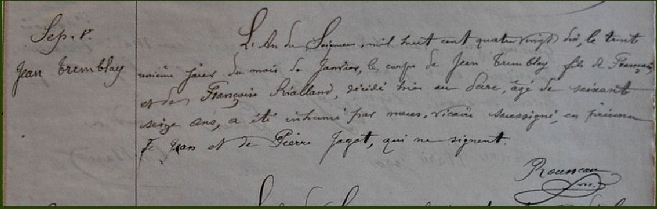 Sep. r
Jean Tremblay
L'An du Seigneur mil huit cent quatre vingt dix, le trent
unième jour du mois de Janvier, le corps de Jean Tremblay fils de François
et de Françoise Rialland, décédé hier au Paire, âgé de soixant
seize ans, a été inhumé par nous, vicaire soussigné, en présence
Jean et de Pierre Jagot, qui ne signent.
Rousseau
vic.